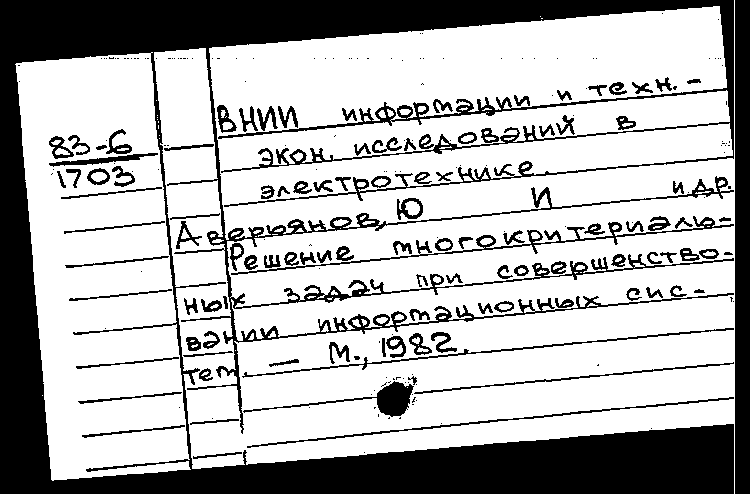 83-6
1703
ВНИИ информации и техн.-
экон. исследований в
электротехнике.
Аверьянов, Ю И и др.
Решение многокритериаль-
ных задач при совершенство-
вании информационных сис-
тем. — М., 1982.